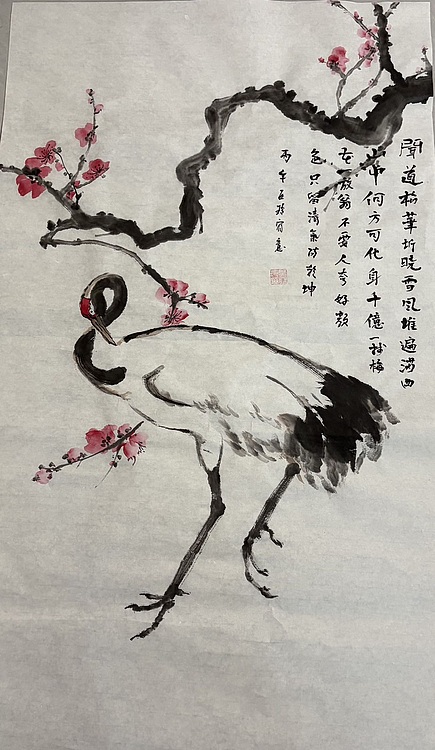 聞道梅華坼曉雪風堆遍滿四
山中何方可化身千億一樹梅
花一放翁不要人夸好顏
色只留清氣滿乾坤
丙午